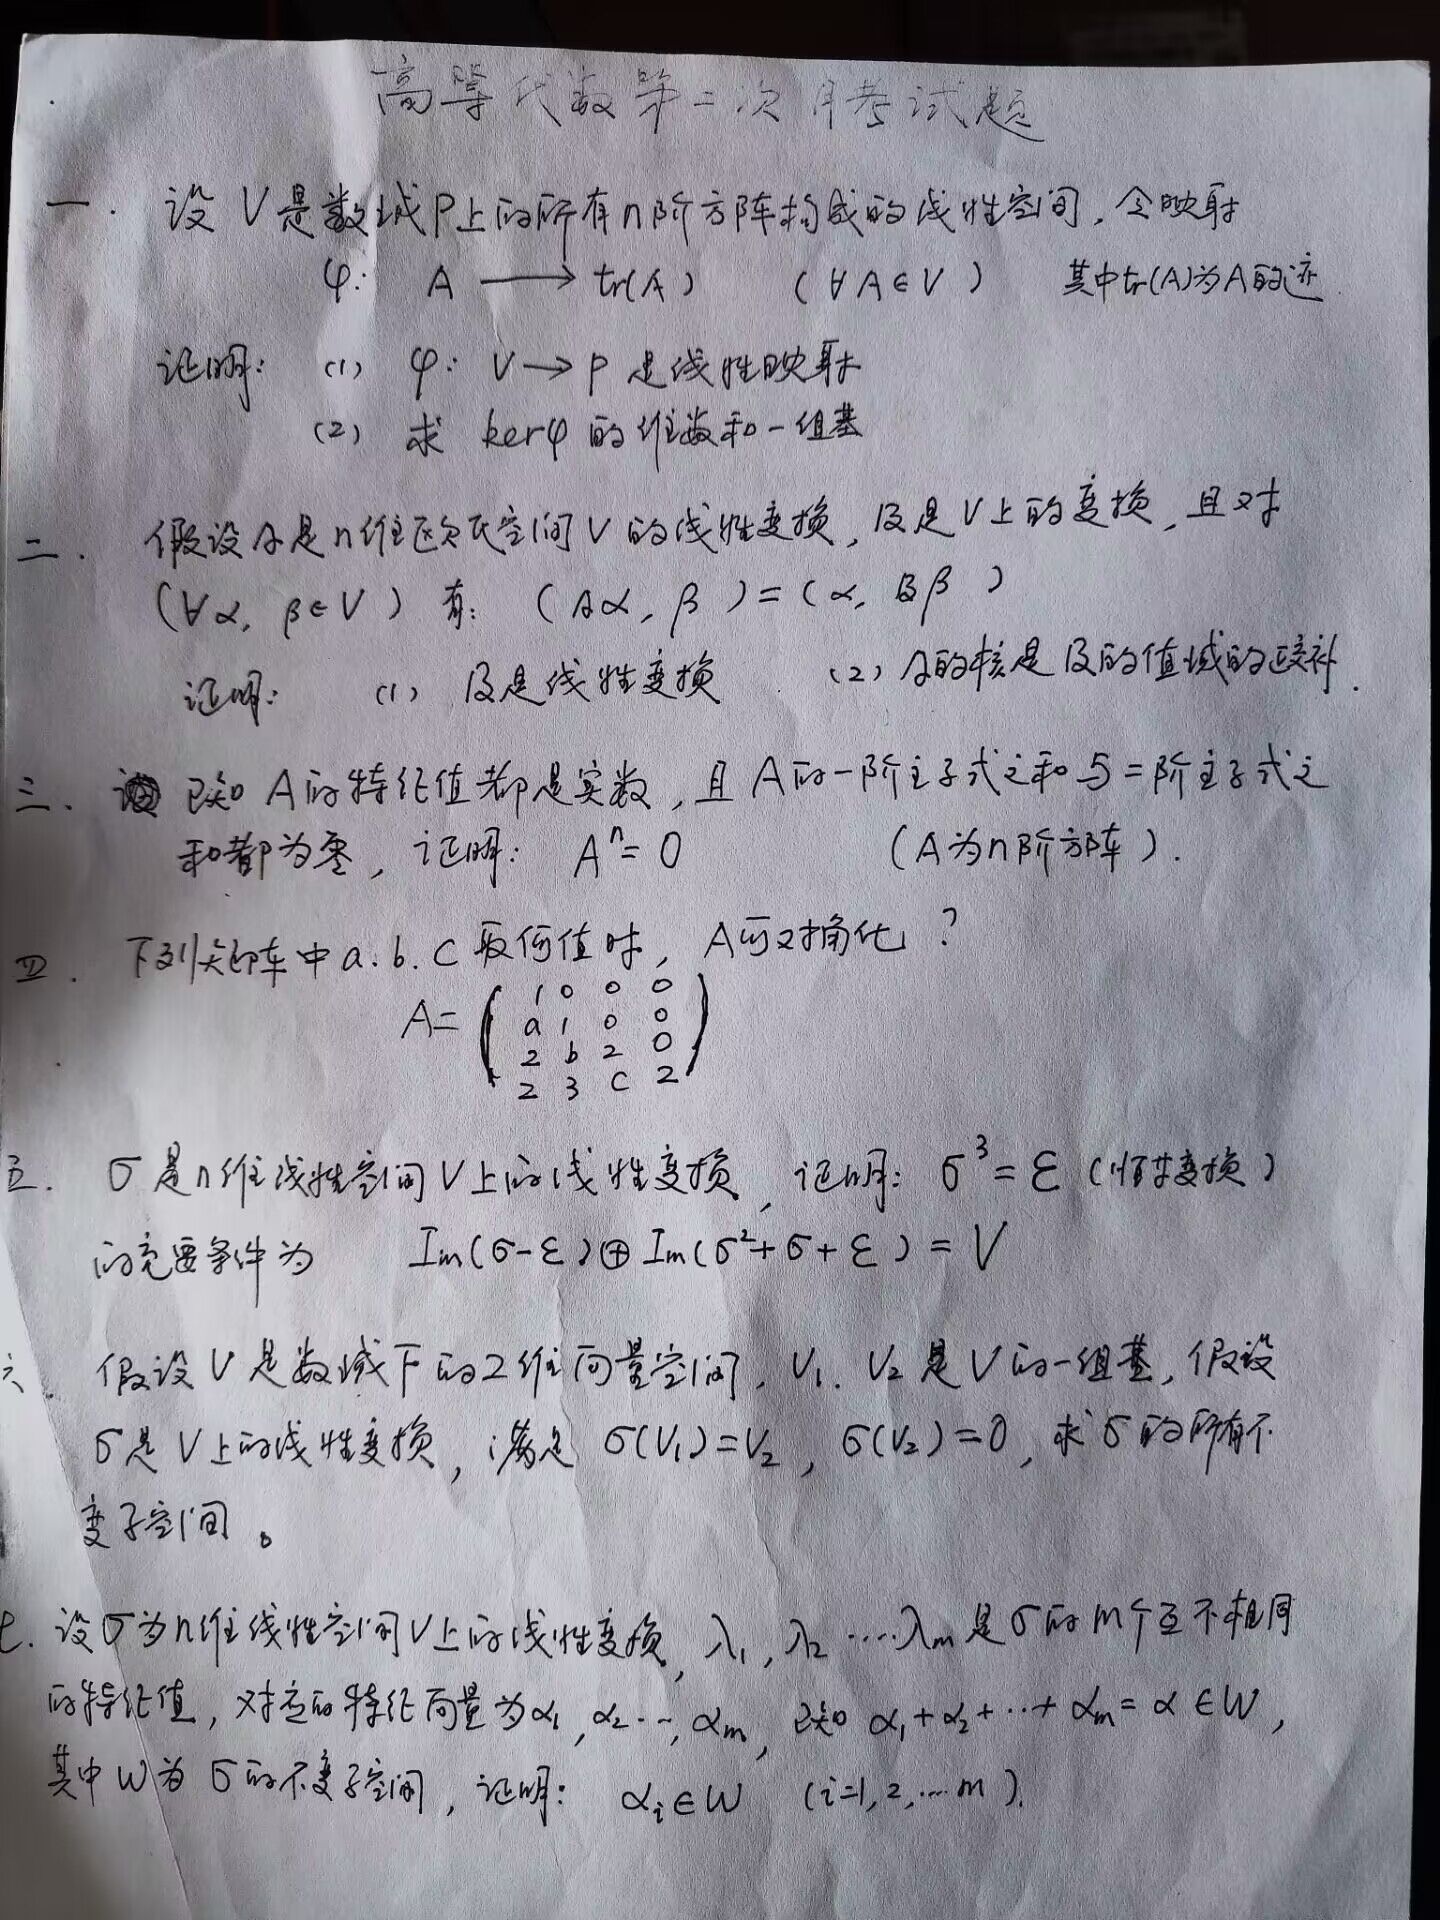 高等代数第二次月考试题
一. 设V是数域P上的所有n阶方阵构成的线性空间，令映射
φ: A ⟶ tr(A) (∀A∈V) 其中tr(A)为A的迹
证明: (1) φ: V→P 是线性映射
(2) 求 kerφ 的维数和一组基
二. 假设A是n维欧氏空间V的线性变换，B是V上的变换，且对
(∀α, β∈V) 有: (Aα, β) = (α, Bβ)
证明: (1) B是线性变换 (2) A的核是B的值域的正交补.
三. 已知A的特征值都是实数，且A的一阶主子式之和与二阶主子式之
和都为零，证明: Aⁿ=0 (A为n阶方阵).
四. 下列矩阵中a.b.c取何值时，A可对角化？
A= ( 1 0 0 0
a 1 0 0
2 b 2 0
2 3 c 2 )
五. σ是n维线性空间V上的线性变换，证明: σ³=ε (恒等变换)
的充要条件为 Im(σ-ε)⊕Im(σ²+σ+ε)=V
六 假设V是数域F的2维向量空间，V₁. V₂是V的一组基，假设
σ是V上的线性变换，满足 σ(V₁)=V₂，σ(V₂)=0，求σ的所有不
变子空间。
七. 设σ为n维线性空间V上的线性变换，λ₁, λ₂ ……λm是σ的m个互不相同
的特征值，对应的特征向量为α₁, α₂…, αm，已知 α₁+α₂+…+αm=α∈W，
其中W为σ的不变子空间，证明: αᵢ∈W (i=1,2,…m).